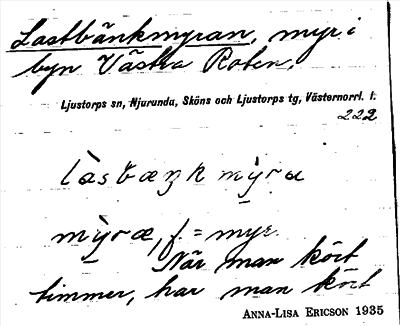 Lastbänkmyran, myr i
byn Västra Roten.
Ljustorps sn, Njurunda, Sköns och Ljustorps tg, Västernorrl. l.
222
làsbæŋkmỳra
mỳræ, f. = myr.
När man kört
timmer, har man kört
ANNA-LISA ERICSON 1935